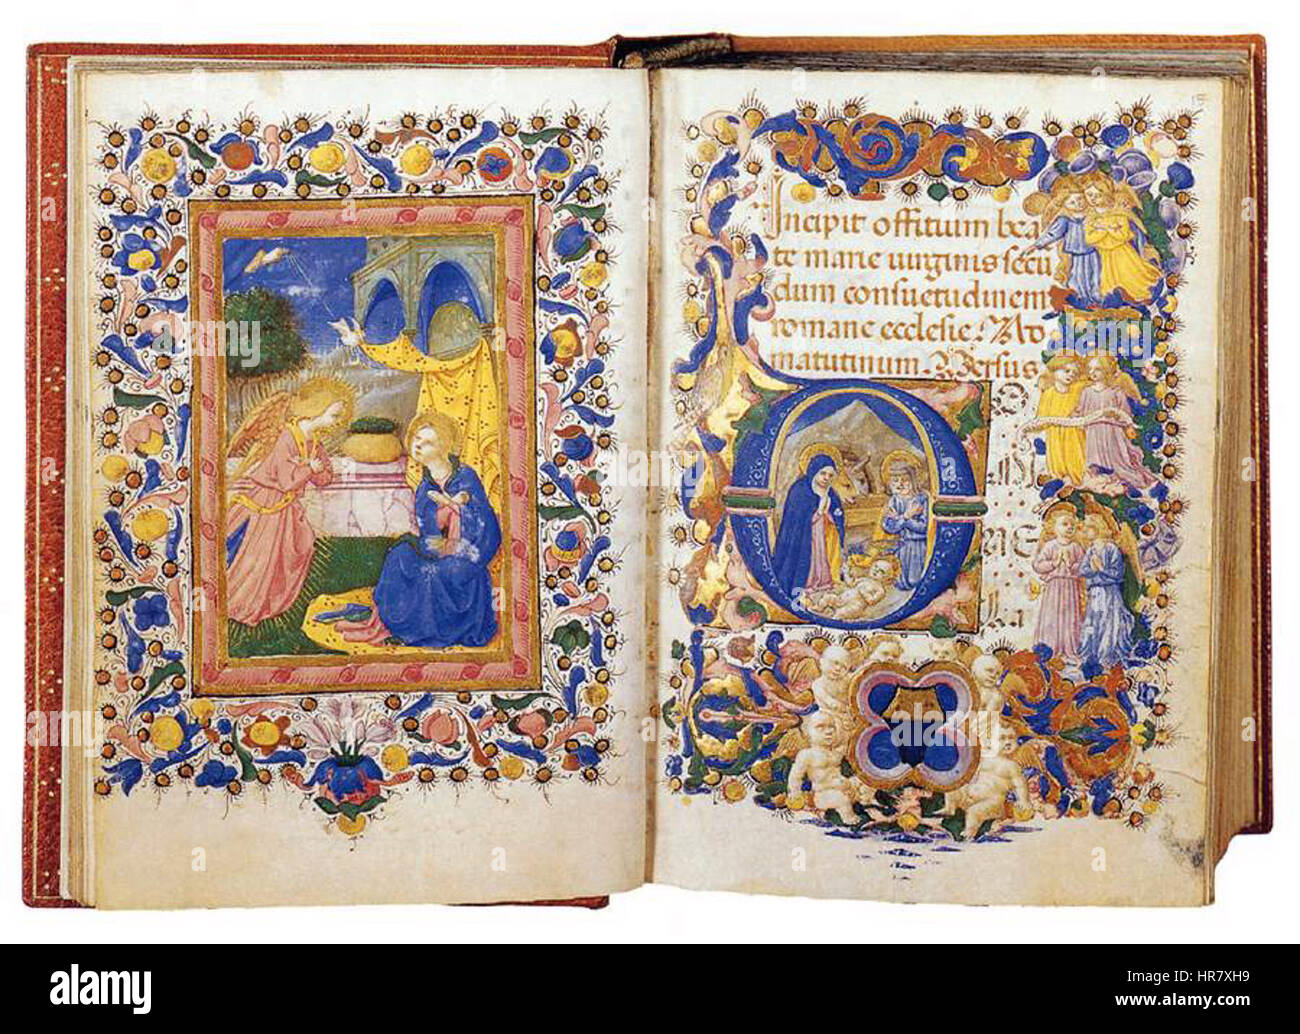 Incipit offitium bea
te marie uirginis secu
dum consuetudinem
romane ecclesie. Ad
matutinum. Versus
D
alamy stock photo
HR7XH9
www.alamy.com